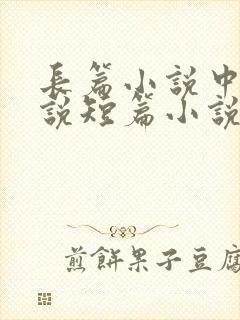 長篇小說中
說短篇小說
煎餅果子豆腐